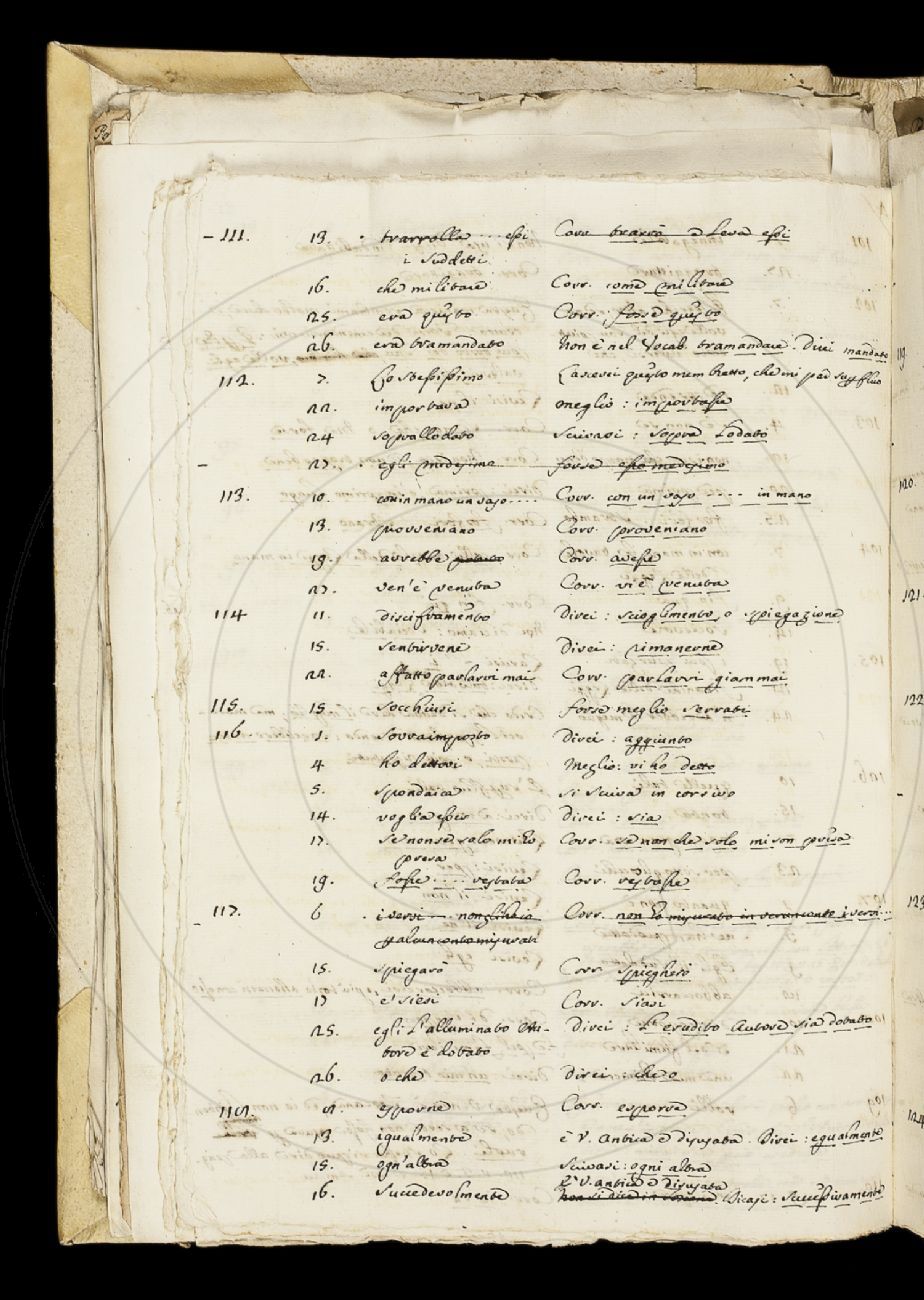 – 111. 13. · trarrolla ... essi Corr. trarrò e leva essi
i suddetti
16. che militare Corr. come militare
25. era questo Corr. fosse questo
26. era tramandato Non è nel Vocab. tramandare. Direi mandato
112. 7. Lo stessissimo Lascerei questo membretto, che mi par superfluo
22. importava meglio: importasse
24 soprallodato scrivasi: sopra Lodato
– 27. · egli medesimo forse esso medesimo
113. 10. con in mano un vaso .... Corr. con un vaso .... in mano
13. provveniano Corr. proveniano
19. avrebbe potuto Corr. avesse
27. ven'è venuta Corr. vi è venuta
114 11. disciframento Direi: scioglimento, o spiegazione
15. sentirvene Direi: rimanerne
22. affatto parlarvi mai Corr. parlarvi giammai
115. 15 socchiusi forse meglio serrati
116. 1. sovraimposto Direi: aggiunto
4 ho dettovi Meglio: vi ho detto
5. spondaica si scriva in corsivo
14. voglia esser Direi: sia
17. se non se solo mi ho Corr. se non che solo mi son presa
presa
19. fosse .... restata Corr. restasse
– 117. 6 · i versi ... non gli ho io Corr. non ho misurato in veruno conto i versi...
per alcun conto misurati
15. spiegarò Corr. spiegherò
17 e' siesi Corr. siasi
25. egli L'alluminato Au- Direi: L'erudito Autore sia dotato
tore è dotato
26. o che Direi: che o
118. 5. esporne Corr. esporre
13. igualmente è V. antica e disusata. Direi: egualmente
15. ogn'altra Scrivasi: ogni altra
È V. antica e disusata
16. succedevolmente non si dice in Dicasi: successivamente
119
120.
121.
122
123
124